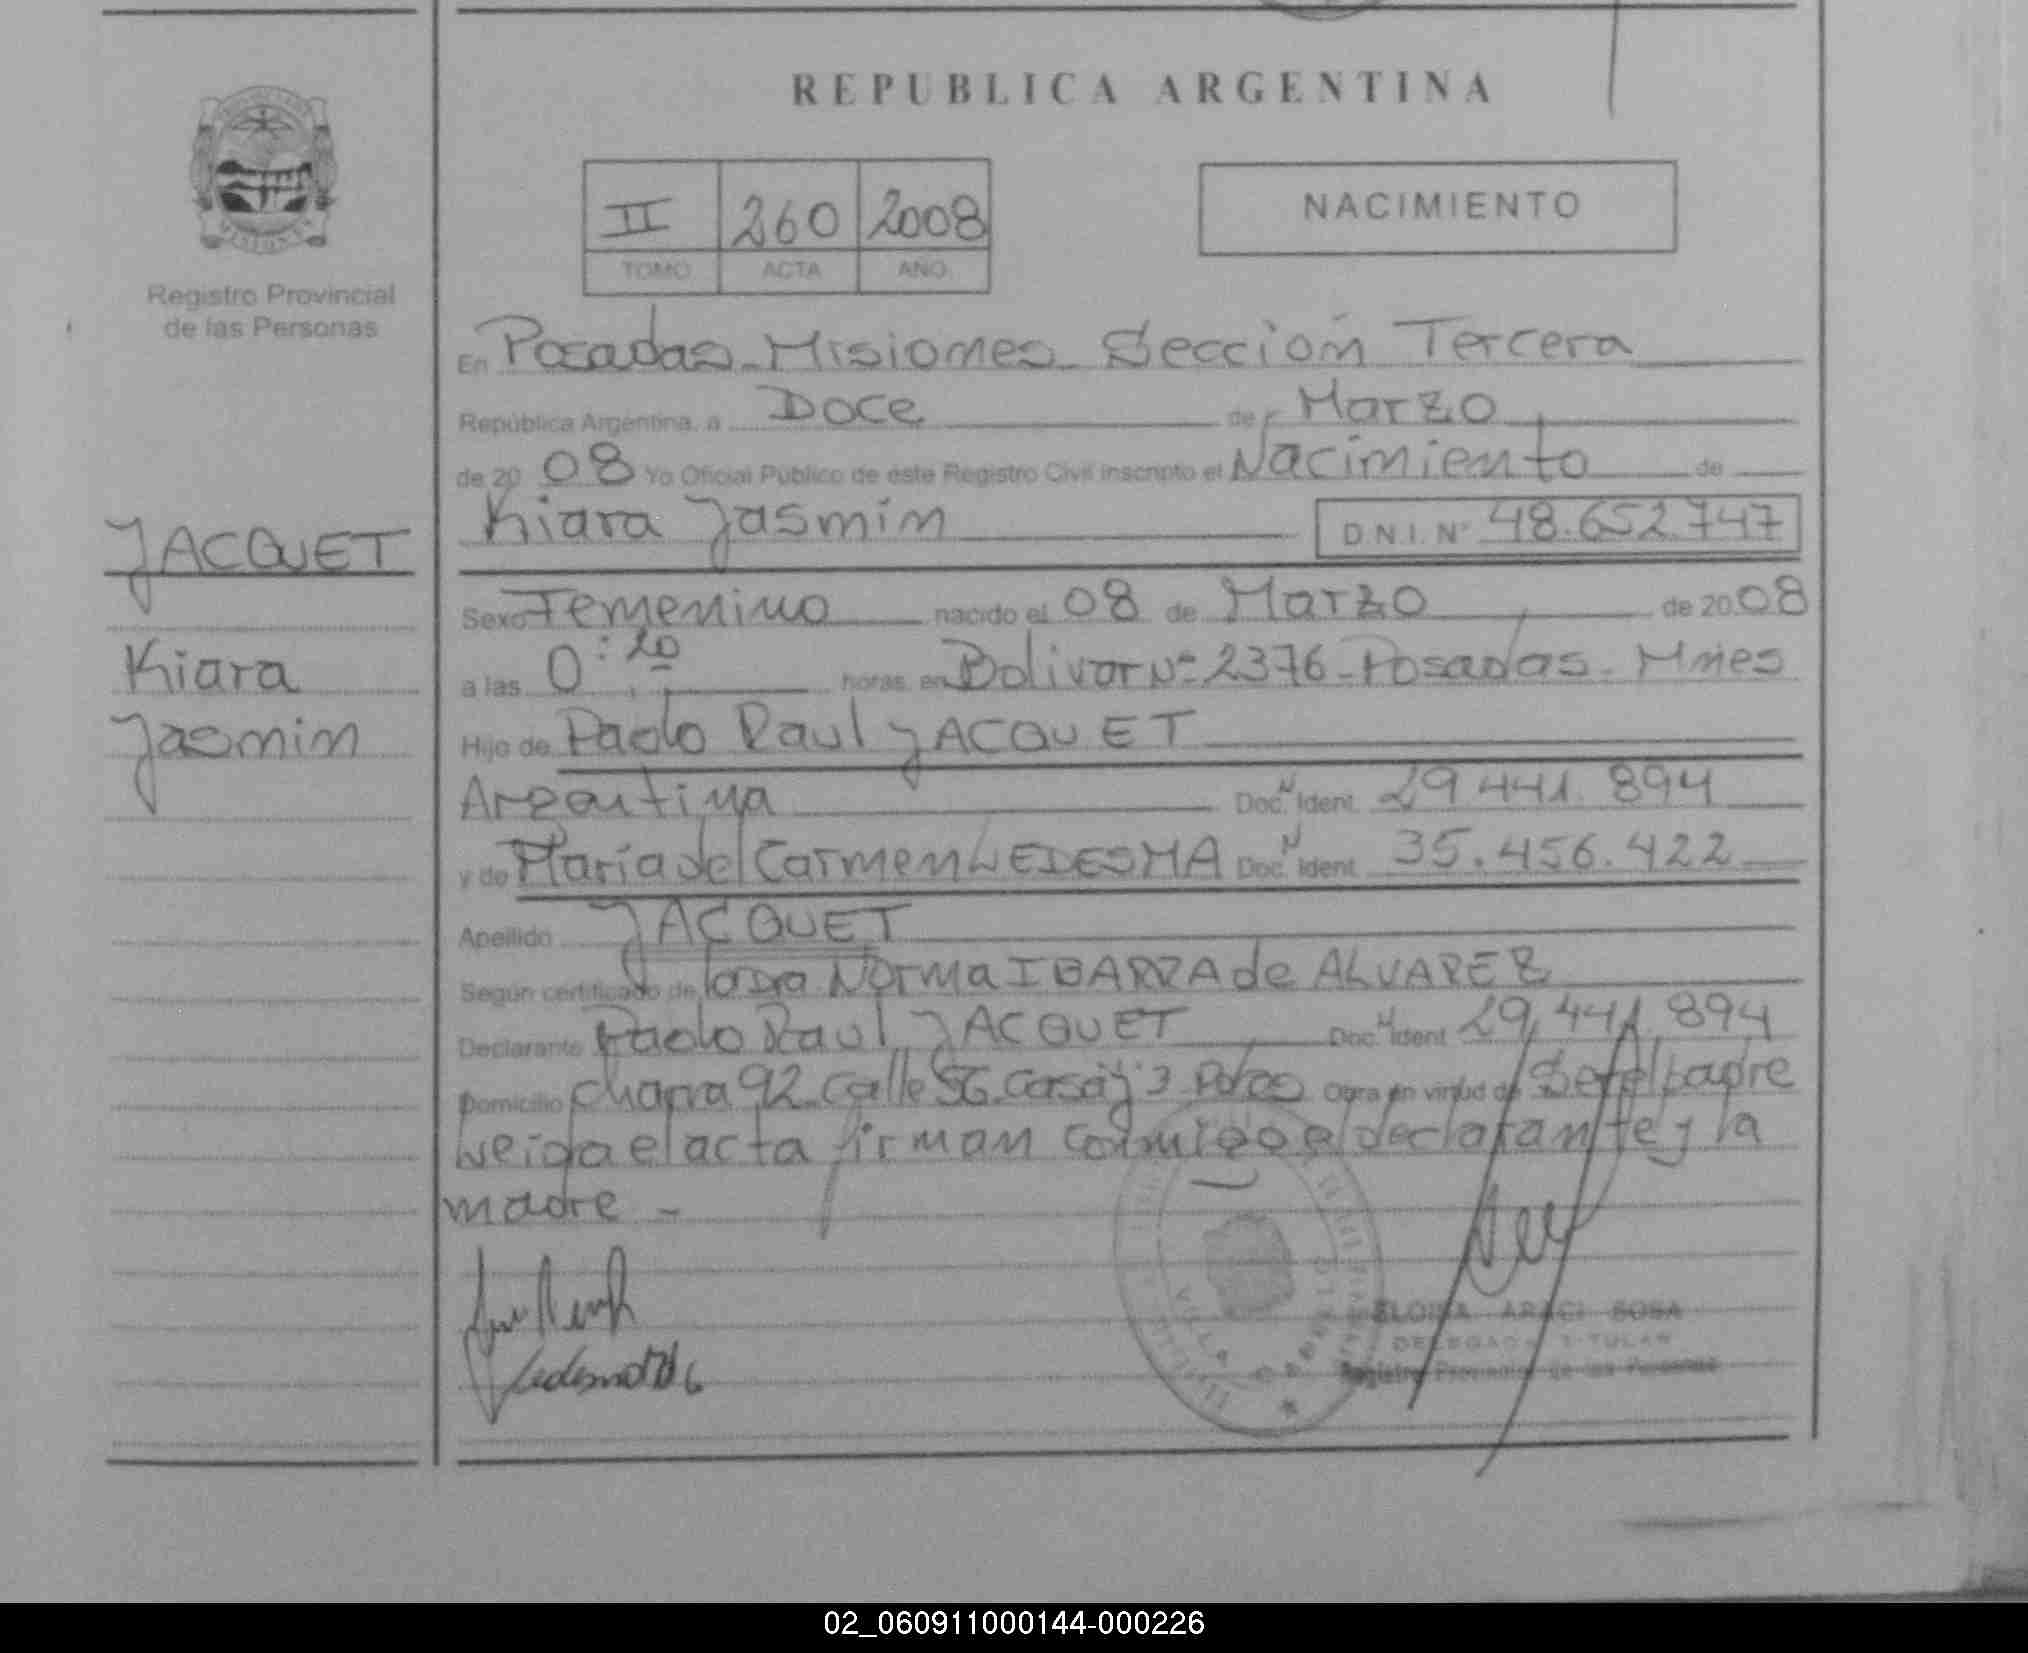 REPUBLICA ARGENTINA
II 260 2008
TOMO ACTA AÑO
NACIMIENTO
MISIONES
Registro Provincial
de las Personas
JACQUET
Kiara
Jasmin
En Posadas - Misiones - Sección Tercera
República Argentina, a Doce de Marzo
de 20 08 Yo Oficial Público de este Registro Civil inscripto el Nacimiento de
Kiara Jasmin D.N.I. Nº 48.652.747
Sexo Femenino nacido el 08 de Marzo de 20 08
a las 0:20 horas en Bolivar Nº 2376 - Posadas - Mnes
Hijo de Paolo Raul JACQUET
Argentina Doc. N Ident. 29.441.894
y de Maria del Carmen LEDESMA Doc. N Ident. 35.456.422
Apellido JACQUET
Según certificado de la Dra Norma IBARRA de ALVAREZ
Declarante Paolo Raul JACQUET Doc. N Ident 29.441.894
Domicilio Chacra 92 Calle 56 Casa 3 Pdas Obra en virtud de Ser el padre
Leida el acta firman conmigo el declarante y la
madre -
Ledesma
ELOISA ARACI SOSA
DELEGADA TITULAR
Registro Provincial de las Personas
VILLA CABELLO
02_060911000144-000226